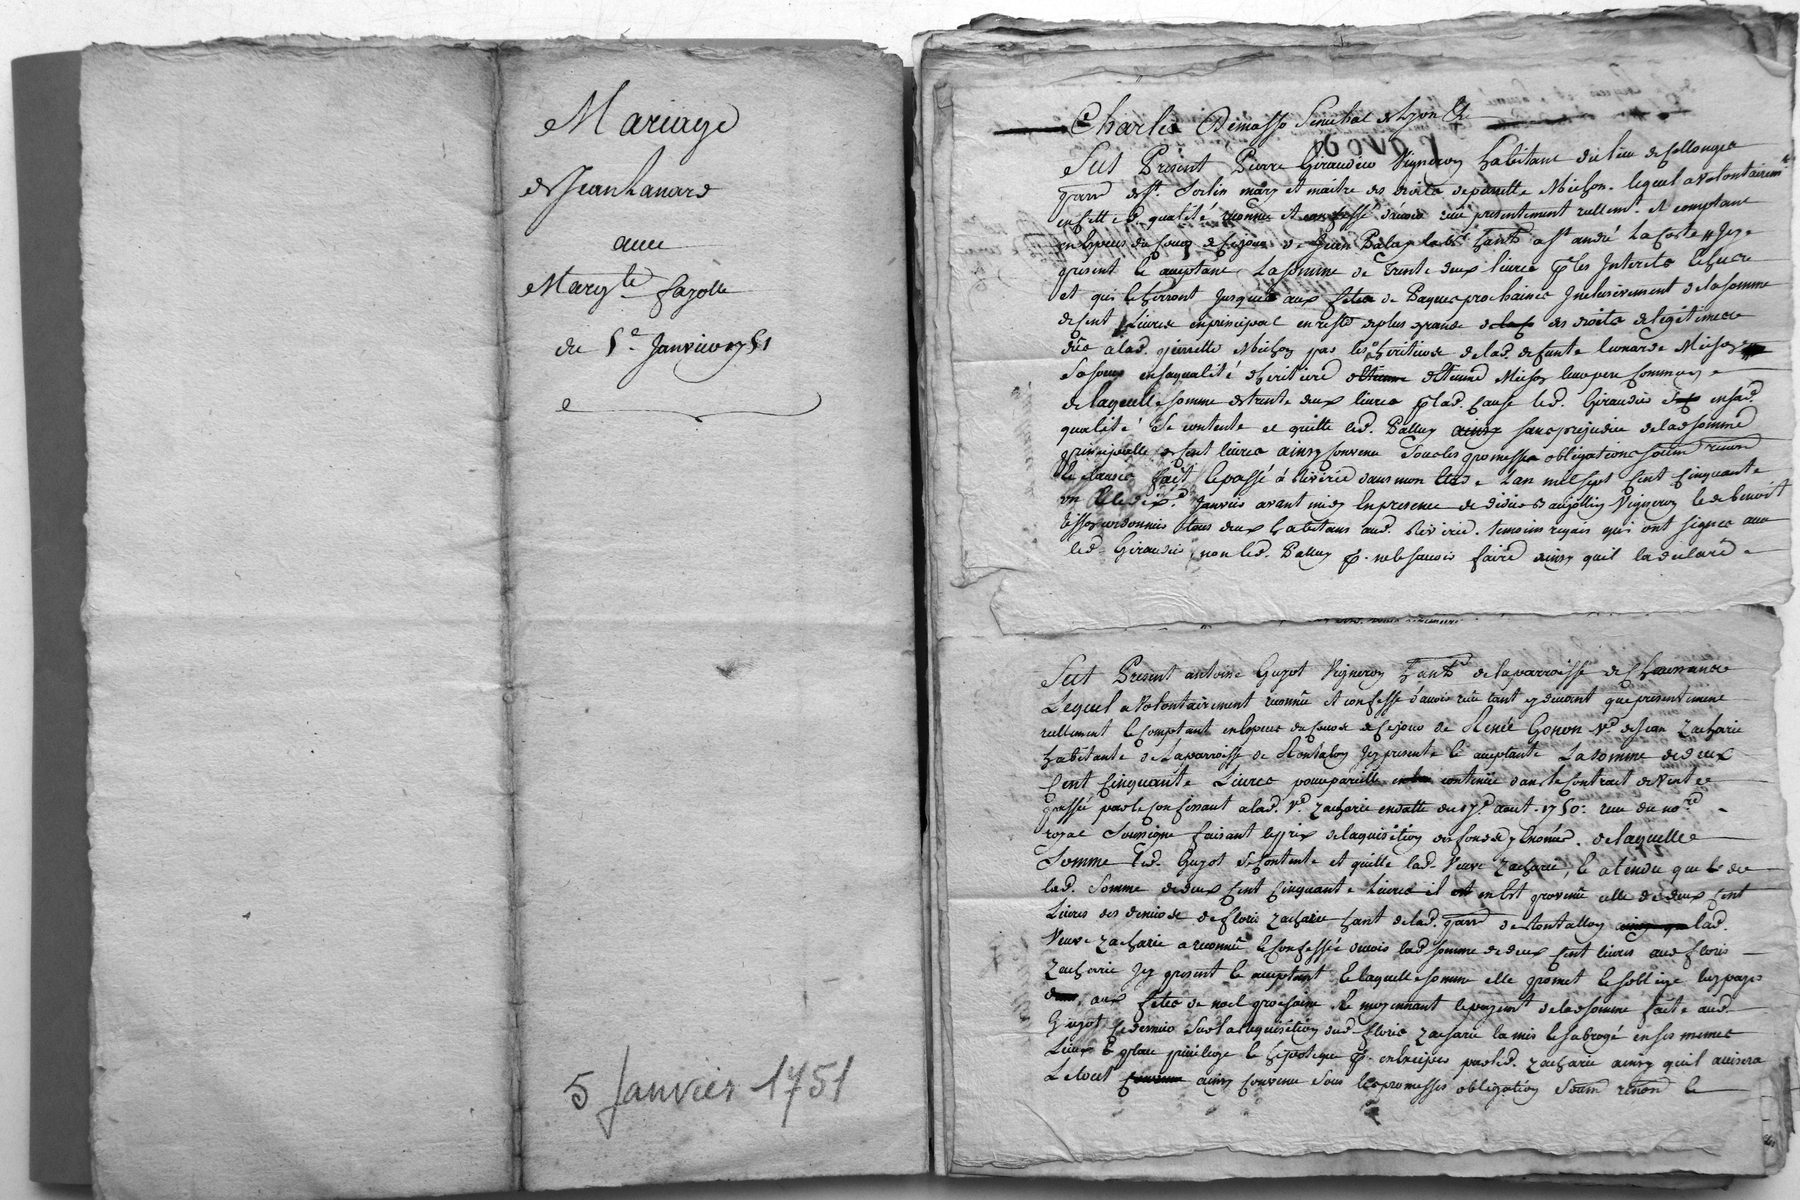 Mariage
de Jean
avec
Marg.te fayolle
du 5e Janvier 1751
5 Janvier 1751
Charles Demasso Senechal de Lyon &c
Fut Present Pierre Giraudier Vigneron habitant du lieu de Collonges
parr de St. Sorlin mary et maitre des droits de pernette Michon. lequel a volontairemt
en cette d. qualité reconnu et confessé d'avoir reçu presentement reellemt. et comptant
en especes du cours de ce jour de Jean habt a St andré La Coste icy
present et acceptant La somme de trente deux livres p les Interets echeus
et qui echerront Jusques aux fetes de Paques prochaines Inclusivement de la somme
de cent Livres en principal en reste de plus grande des droits de legitimes
dûs a lad. pernette Michon par les heritiers de lad. defunte leonarde Michon
sa soeur en sa qualité d'heritiere d'Etienne Michon leur pere commun
de laquelle somme de trente deux livres p lad. cause led. Giraudier en sad.
qualité se contente et quitte led. Palluy sans prejudice de lad somme
principale de cent livres ainsy convenu sous les promesses obligations soum renon
& clauses fait et passé à Riverie dans mon etude L'an mil sept cent cinquante
un & le Janvier avant midy En presence de Vigneron et de benoit
cordonnier tous deux habitans aud. Riverie. temoins requis qui ont signés avec
led. Giraudier non led. Palluy p. ne le savoir faire ainsy quil la declaré
Fut Present antoine Guyot Vigneron habt de la parroisse de Chaussans
Lequel a volontairement reconnu et confessé d'avoir reçu tant cy devant que presentement
reellement et comptant en especes du cours de ce jour de Renée Gonon Ve. de Jean Zacharie
habitante de la parroisse de Rontalon icy presente et acceptante La somme de deux
cent cinquante Livres pour pareille contenüe dans le contrat de vente
passé par le confessant a lad. Ve. Zacharie en datte du 17e. aout. 1750. reçu du nore
royal soussigné faisant le prix de l'aquisition des fonds y enoncés. de laquelle
somme led. Guyot se contente et quitte lad. Veuve Zacharie, et atendu que de
lad. somme de deux cent cinquante Livres il en est provenu celle de deux cent
Livres des deniers de fleuris Zacharie habt de lad. parr de Rontallon lad.
Veuve Zacharie a reconnu et confessé devoir lad somme de deux cent livres aud fleuris
Zacharie icy present et acceptant & laquelle somme elle promet et s'oblige luy payer
aux fetes de noel prochaine & moyennant le payemt de lad somme faite aud.
Guyot ce dernier sur la requisition dud. fleuris Zacharie la mis et subrogé en ses memes
Lieux & place privilege et hipoteque p. en par led. Zacharie ainsy quil avisera
Le tout ainsy convenu sous les promesses obligation soum renon &